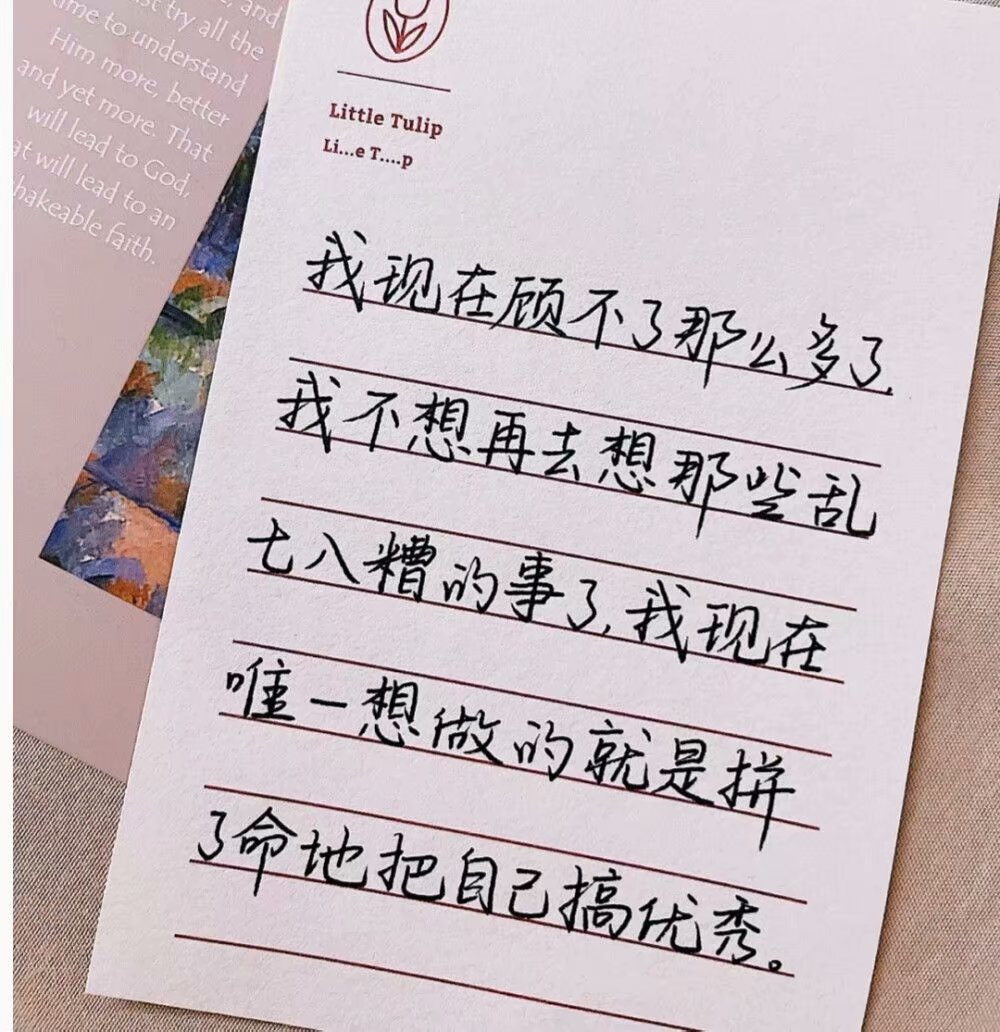 try all the
to understand
Him more, better
and yet more. That
will lead to God,
will lead to an
faith.
Little Tulip
Li...e T....p
我现在顾不了那么多了.
我不想再去想那些乱
七八糟的事了,我现在
唯一想做的就是拼
了命地把自己搞优秀。